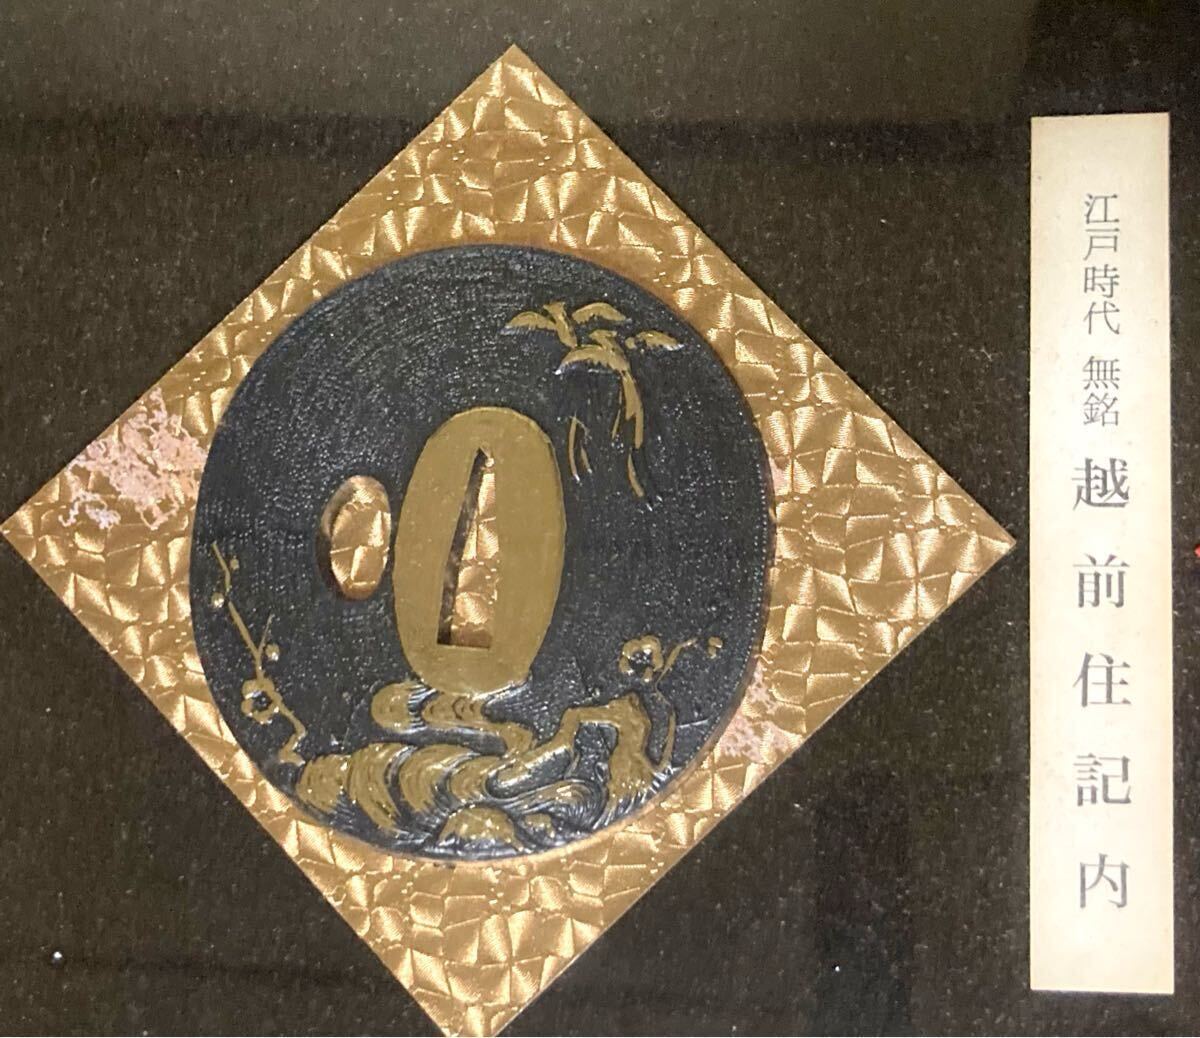 江戸時代 無銘 越前住記内